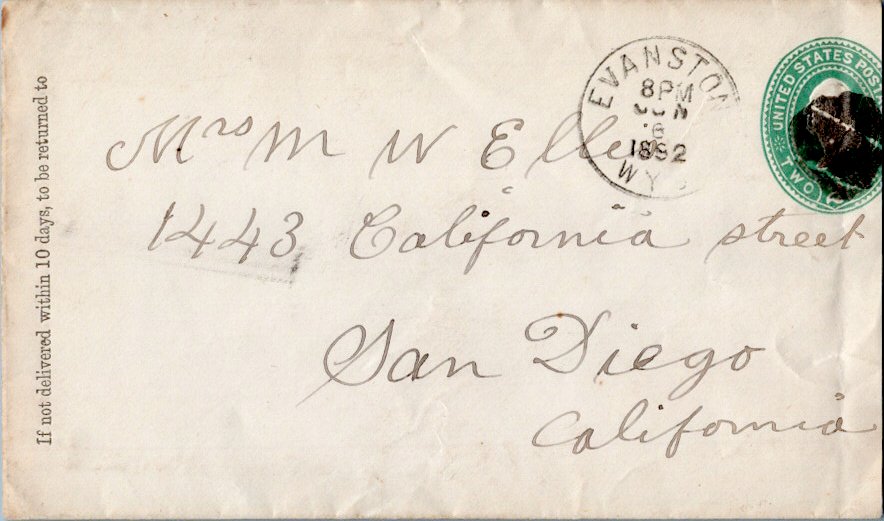 If not delivered within 10 days, to be returned to
EVANSTON
8PM
JUN
6
WYO
UNITED STATES POSTAGE
TWO
Mrs M W
1443 California street
San Diego
California